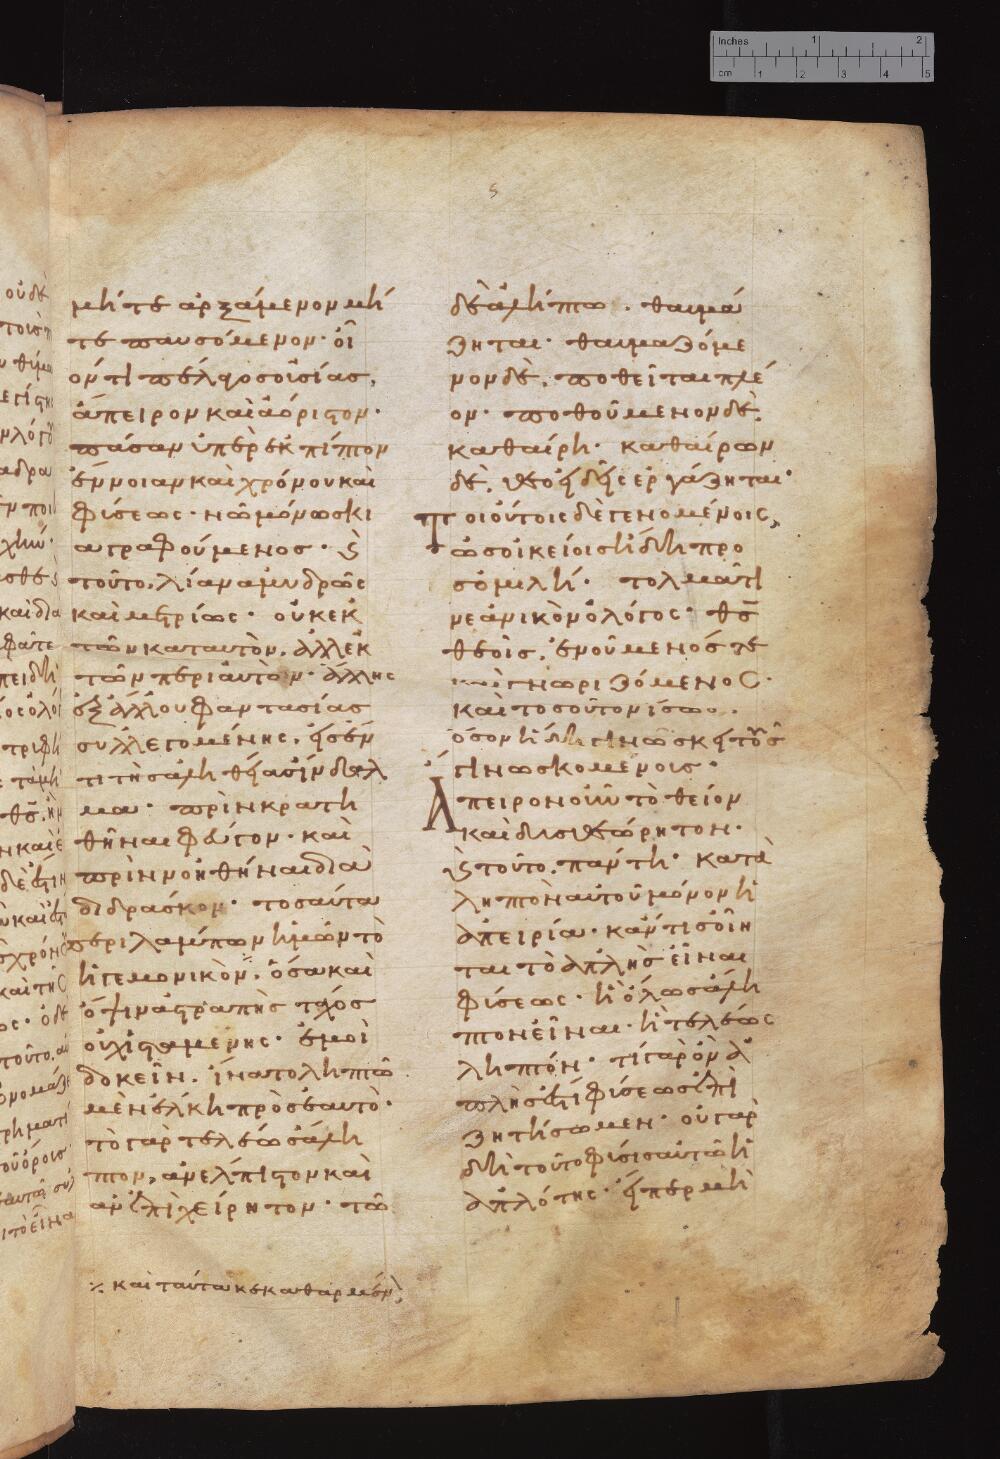 Inches 1 2
cm 1 2 3 4 5
5
μήτε ἀρξάμενον μή
τε παυσόμενον· οἷ
όν τι πέλαγος οὐσίας,
ἄπειρον καὶ ἀόριστον·
πᾶσαν ὑπερεκπίπτον
ἔννοιαν καὶ χρόνου καὶ
φύσεως· νῷ μόνῳ σκι
αγραφούμενος· καὶ
τοῦτο, λίαν ἀμυδρῶς
καὶ μετρίως· οὐκ ἐκ
τῶν κατ αὐτὸν, ἀλλ ἐκ
τῶν περὶ αὐτὸν· ἄλλης
ἐξ ἄλλου φαντασίας
συλλεγομένης, εἰς ἕν
τι τῆς ἀληθείας ἴνδαλ
μα· πρὶν κρατη
θῆναι φεῦγον· καὶ
πρὶν νοηθῆναι δια
διδράσκον· τοσαῦτα
περιλάμπων ἡμῶν τὸ
ἡγεμονικὸν, ὅσα καὶ
ὄψιν ἀστραπῆς τάχος
οὐχ ἱσταμένης· ἐμοὶ
δοκεῖν, ἵνα τῷ ληπτῷ
μὲν ἕλκῃ πρὸς ἑαυτό·
τὸ γὰρ τελέως ἄλη
πτον, ἀνέλπιστον καὶ
ἀνεπιχείρητον· τῷ
⁒ καὶ ταῦτα κεκαθαρμένῳ,
δὲ ἀλήπτῳ, θαυμά
ζηται· θαυμαζόμε
νον δὲ, ποθεῖται πλέ
ον· ποθούμενον δὲ,
καθαίρῃ· καθαίρων
δὲ, θεοειδεῖς ἐργάζηται·
Τοιούτοις δὲ γενομένοις,
ὡς οἰκείοις ἤδη προ
σομιλῇ· τολμᾷ τι
νεανικὸν ὁ λόγος· θς
θεοῖς, ἑνούμενός τε
καὶ γνωριζόμενος·
καὶ τοσοῦτον ἴσως,
ὅσον ἤδη γινώσκει τοὺς
γινωσκομένους·
Ἄπειρον οὖν τὸ θεῖον
καὶ δυσθεώρητον·
καὶ τοῦτο, πάντη κατα
ληπτὸν αὐτοῦ μόνον ἡ
ἀπειρία· κἄν τις οἴη
ται τὸ ἁπλῆς εἶναι
φύσεως· ἢ ὅλως ἄλη
πτον εἶναι· ἢ τελέως
ληπτόν· τί γὰρ ὃν ἁ
πλῆς ἐστι φύσεως ἐπι
ζητήσωμεν· οὐ γὰρ
δὴ τοῦτο φύσις αὐτῷ ἡ
ἁπλότης· εἴπερ μὴ